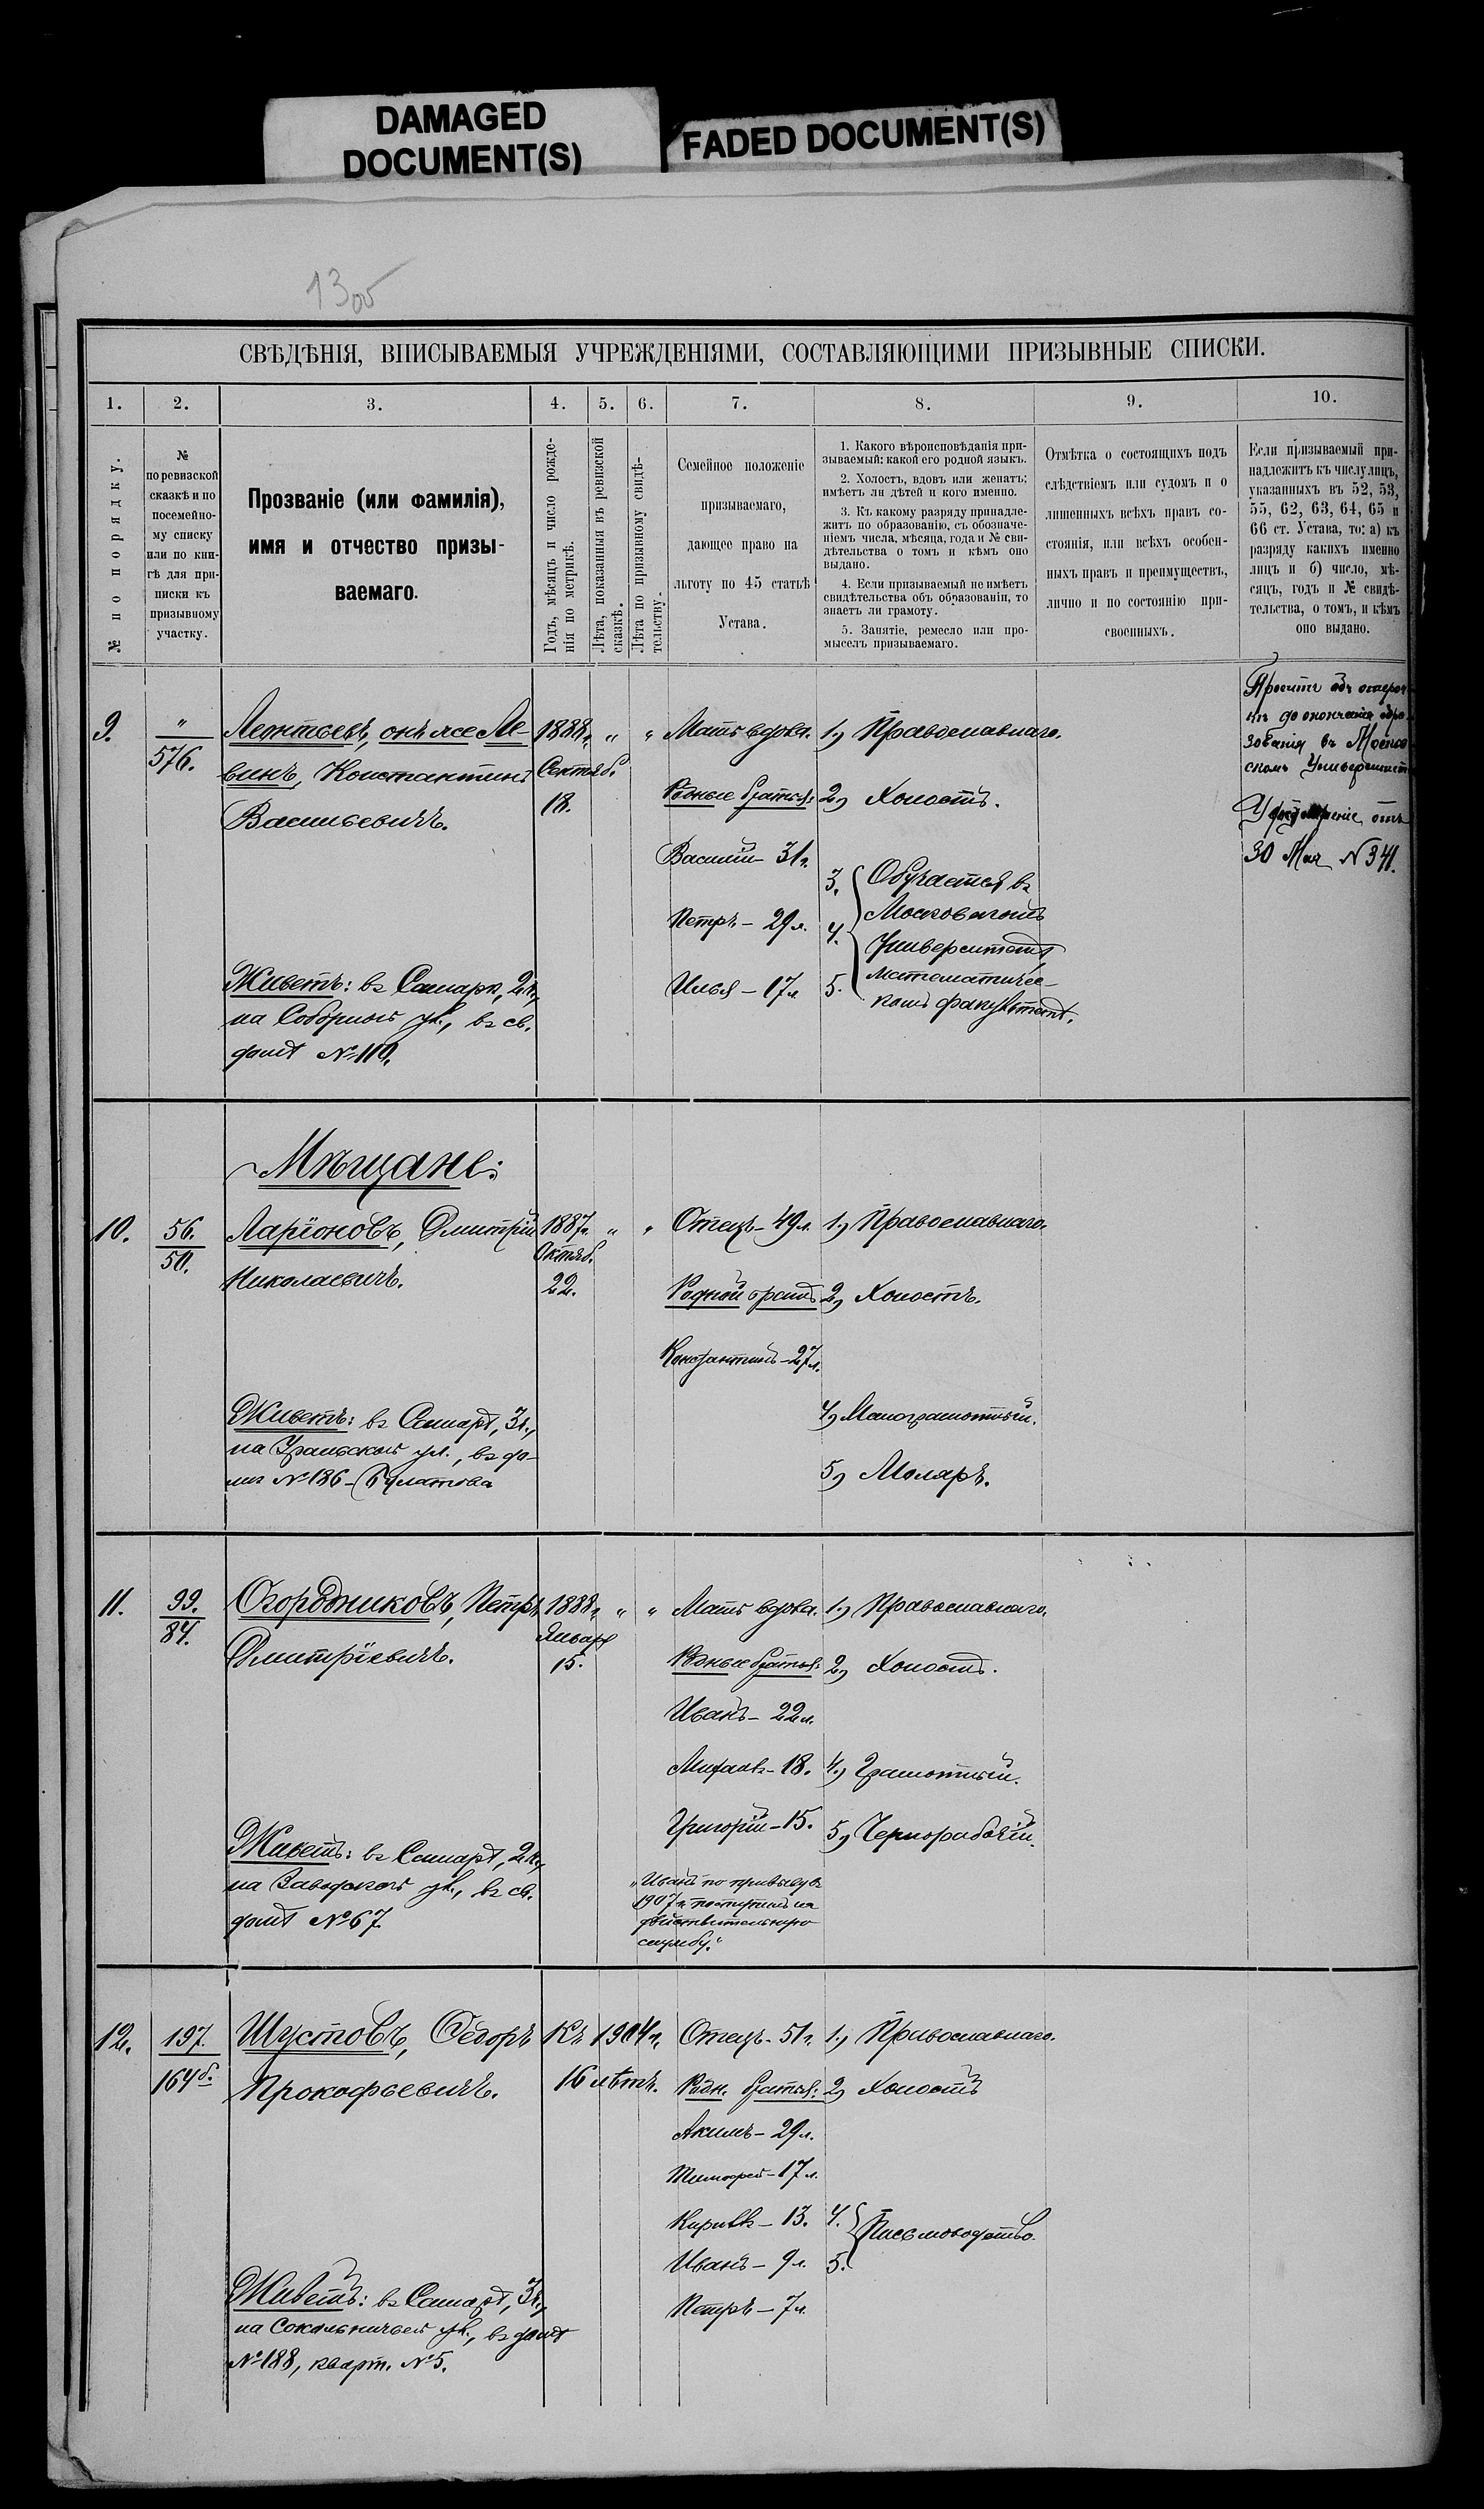 DAMAGED
DOCUMENT(S)
FADED DOCUMENT(S)
13об
СВѢДѢНІЯ, ВПИСЫВАЕМЫЯ УЧРЕЖДЕНІЯМИ, СОСТАВЛЯЮЩИМИ ПРИЗЫВНЫЕ СПИСКИ.
1. 2. 3. 4. 5. 6. 7. 8. 9. 10.
№ по порядку.
№
по ревизской
сказкѣ и по
посемейно-
му списку
или по кни-
гѣ для при-
писки къ
призывному
участку.
Прозваніе (или фамилія),
имя и отчество призы-
ваемаго.
Годъ, мѣсяцъ и число рожде-
нія по метрикѣ.
Лѣта, показанныя въ ревизской
сказкѣ.
Лѣта по призывному свидѣ-
тельству.
Семейное положеніе
призываемаго,
дающее право на
льготу по 45 статьѣ
Устава.
1. Какого вѣроисповѣданія при-
зываемый: какой его родной языкъ.
2. Холостъ, вдовъ или женатъ;
имѣетъ ли дѣтей и кого именно.
3. Къ какому разряду принадле-
житъ по образованію, съ обозначе-
ніемъ числа, мѣсяца, года и № сви-
дѣтельства о томъ и кѣмъ оно
выдано.
4. Если призываемый не имѣетъ
свидѣтельства объ образованіи, то
знаетъ ли грамоту.
5. Занятіе, ремесло или про-
мыселъ призываемаго.
Отмѣтка о состоящихъ подъ
слѣдствіемъ или судомъ и о
лишенныхъ всѣхъ правъ со-
стоянія, или всѣхъ особен-
ныхъ правъ и преимуществъ,
лично и по состоянію при-
своенныхъ.
Если призываемый при-
надлежитъ къ числу лицъ,
указанныхъ въ 52, 53,
55, 62, 63, 64, 65 и
66 ст. Устава, то: а) къ
разряду какихъ именно
лицъ и б) число, мѣ-
сяцъ, годъ и № свидѣ-
тельства, о томъ, и кѣмъ
оно выдано.
9.
"
576.
Леонтьевъ, онъ же Ле-
винъ, Константинъ
Васильевичъ.
Живетъ: въ Самарѣ, 2ч.,
на Соборной ул., въ св.
домѣ №110.
1888г.
Сентяб.
18.
" "
Мать вдова.
Родные братья:
Василій - 31г.
Петръ - 29л.
Илья - 17л.
1) Православнаго.
2) Холостъ.
3. Обучается въ
Московскомъ
4. Университетѣ
математичес-
5. комъ факультетѣ.
Проситъ объ отсроч
кѣ до окончанія обра
зованія въ Москов
скомъ Университ
отъ
30 Мая №341.
Мѣщане:
10.
56.
50.
Ларіоновъ, Дмитрій
Николаевичъ.
Живетъ: въ Самарѣ, 3ч.,
на Уральской ул., въ до-
мѣ №186 - Булатова
1887г.
Октяб.
22.
" "
Отецъ - 49л.
Родной братъ
Константинъ - 27л.
1) Православнаго.
2) Холостъ.
4) Малограмотный.
5) Маляръ.
11.
99.
84.
Огородниковъ, Петръ
Дмитріевичъ.
Живетъ: въ Самарѣ, 2ч.,
на Заводской ул., въ св.
домѣ №67
1888г.
Январ
15.
" "
Мать вдова.
Родные братья:
Иванъ - 22л.
Михаилъ - 18.
Григорій - 15.
"Иванъ по призыву въ
1907г. поступилъ на
дѣйствительную
службу."
1) Православнаго.
2) Холостъ.
4) Грамотный.
5) Чернорабочій.
12.
197.
164б.
Шустовъ, Ѳедоръ
Прокофьевичъ.
Живетъ: въ Самарѣ, 3ч.,
на Сокольничьей ул., въ домѣ
№188, кварт. №5.
Къ 1904г.
16 лѣтъ.
Отецъ - 51г.
Родн. братья:
Акимъ - 29л.
Тимофей - 17л.
Кирилъ - 13.
Иванъ - 9л.
Петръ - 7л.
1) Православнаго.
2) Холостъ
4. Письмоводство.
5.